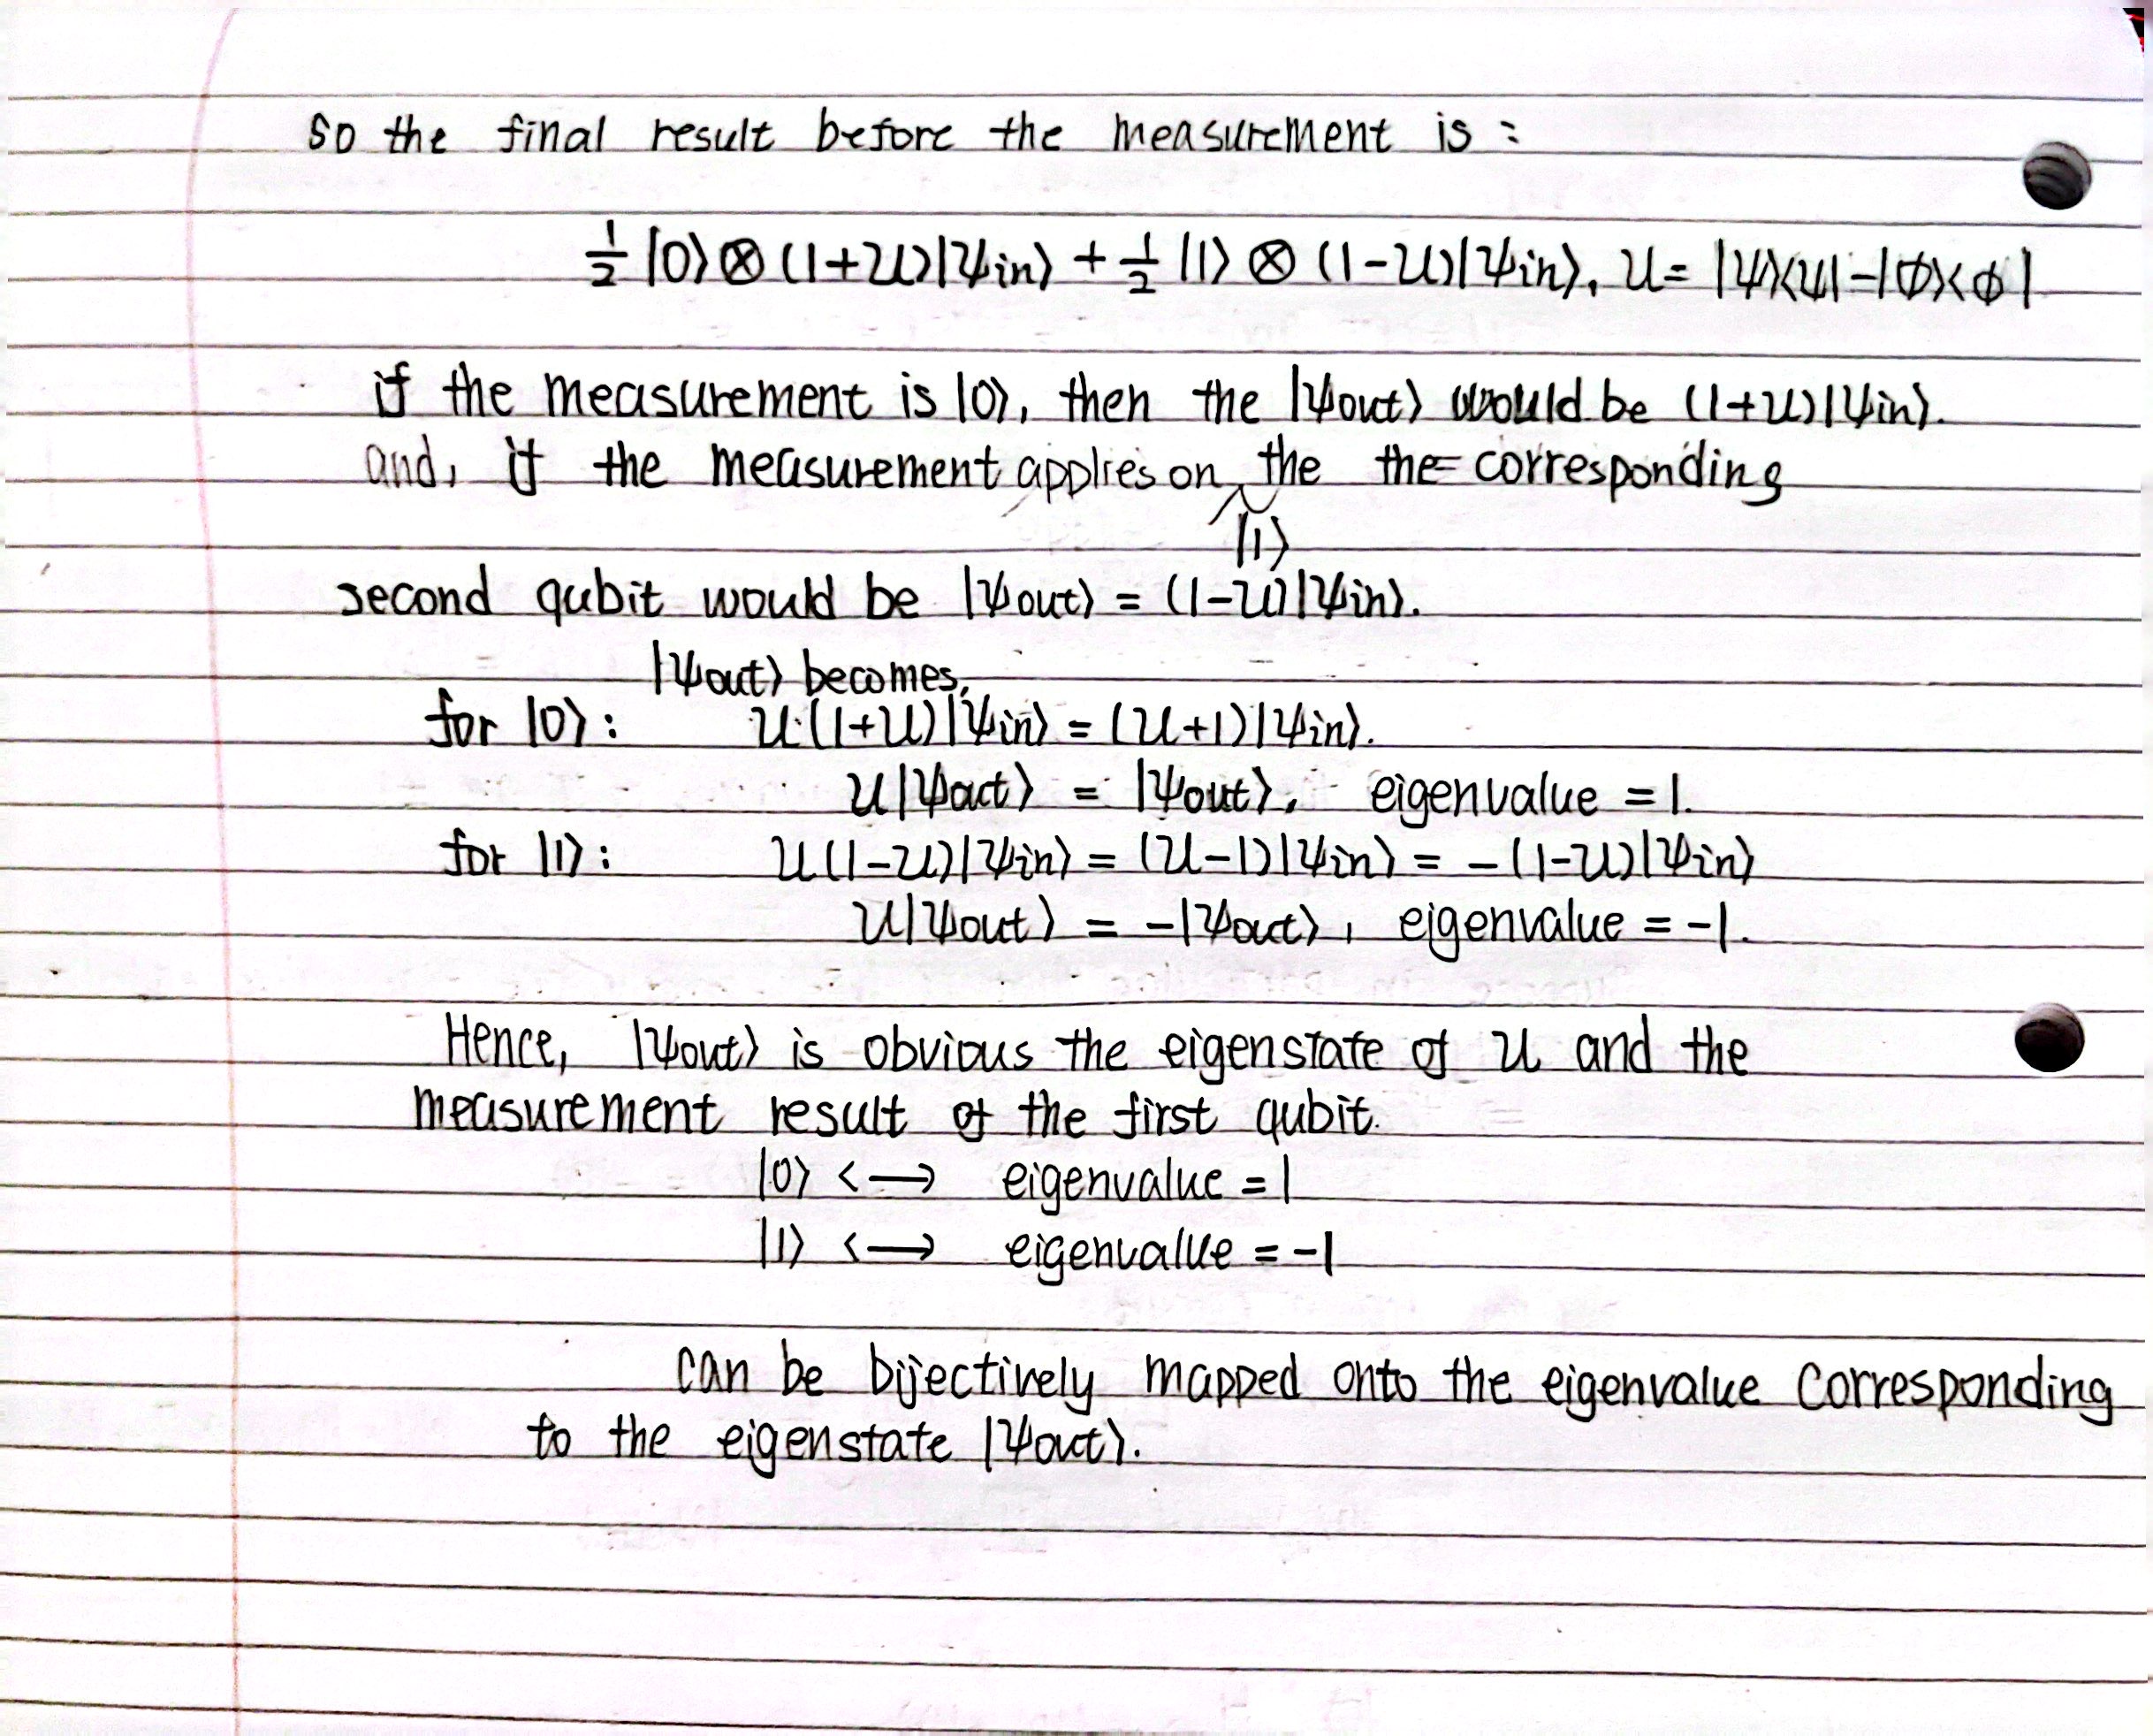 so the final result before the measurement is :
½ |0⟩ ⊗ (1+U)|ψin⟩ + ½ |1⟩ ⊗ (1-U)|ψin⟩, U = |ψ⟩⟨ψ| - |ϕ⟩⟨ϕ|
if the measurement is |0⟩, then the |ψout⟩ would be (1+U)|ψin⟩.
and, if the measurement applies on the the corresponding
|1⟩
second qubit would be |ψout⟩ = (1-U)|ψin⟩.
|ψout⟩ becomes,
for |0⟩: U·(1+U)|ψin⟩ = (U+1)|ψin⟩.
U|ψout⟩ = |ψout⟩, eigenvalue = 1.
for |1⟩: U(1-U)|ψin⟩ = (U-1)|ψin⟩ = -(1-U)|ψin⟩
U|ψout⟩ = -|ψout⟩, eigenvalue = -1.
Hence, |ψout⟩ is obvious the eigenstate of U and the
measurement result of the first qubit.
|0⟩ <—> eigenvalue = 1
|1⟩ <—> eigenvalue = -1
can be bijectively mapped onto the eigenvalue corresponding
to the eigenstate |ψout⟩.